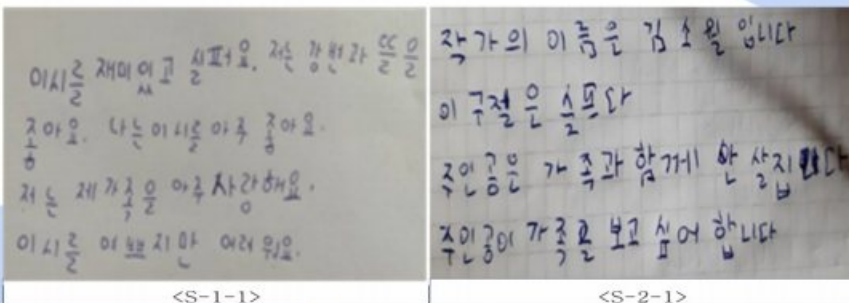 이시를 재미있고 슬퍼요. 저는 강변과 뜰을
좋아요. 나는 이시를 아주 좋아요.
저는 제 가족을 아주 사랑해요.
이시를 여쁘지만 어려워요.
<S-1-1>
작가의 이름은 김소월 입니다
이 구절은 슬프다
주인공은 가족과 함게 안 살집니다
주인공이 가족를 보고 싶어 합니다
<S-2-1>